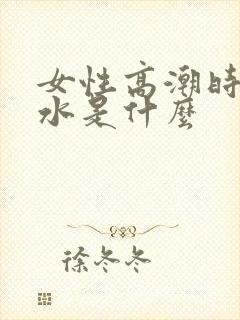 女性高潮時
水是什麼
徐冬冬